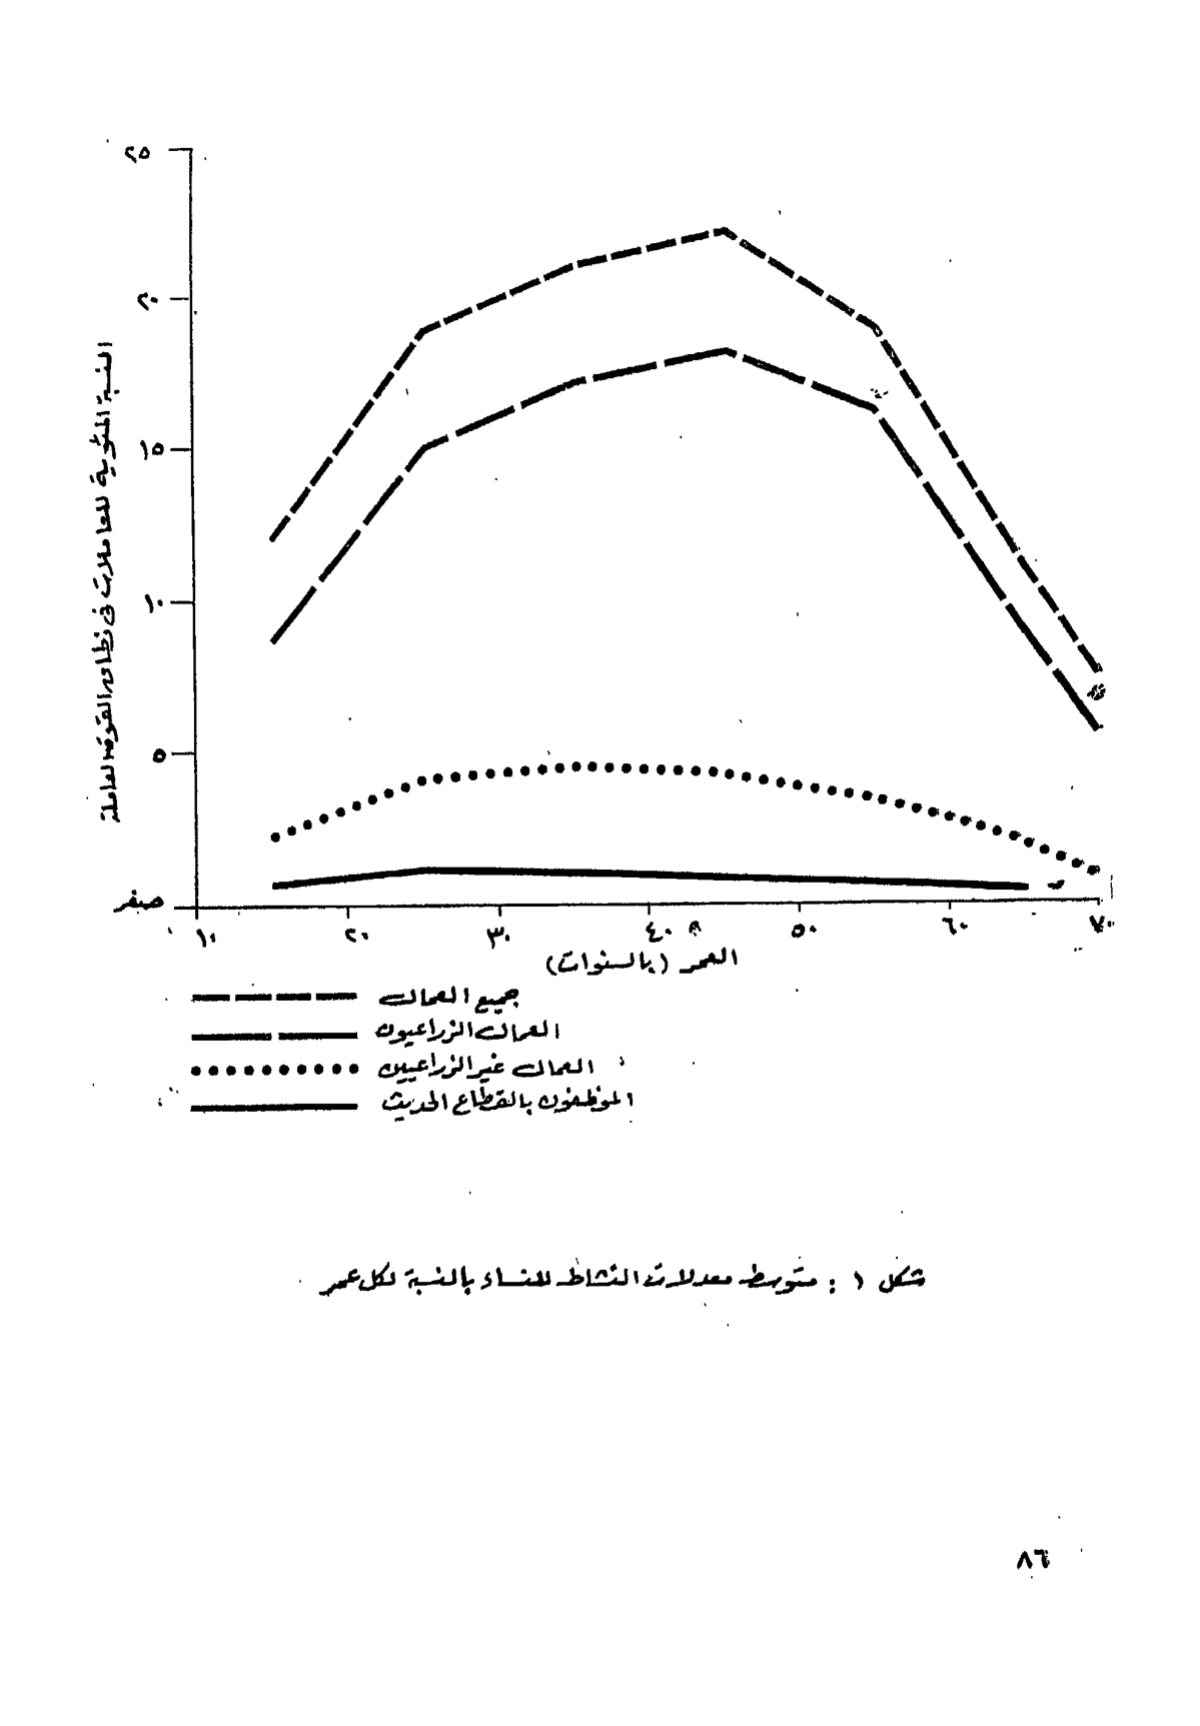 ٢٥
٢٠
١٥
١٠
٥
صفر
النسبة المئوية للعاملات فى نطاق القوة العاملة
١٠ ٢٠ ٣٠ ٤٠ ٥٠ ٦٠ ٧٠
العمر (بالسنوات)
جميع العمال
العمال الزراعيون
العمال غير الزراعيين
الموظفون بالقطاع الحديث
شكل ١ : متوسط معدلات النشاط للنساء بالنسبة لكل عمر
٨٦